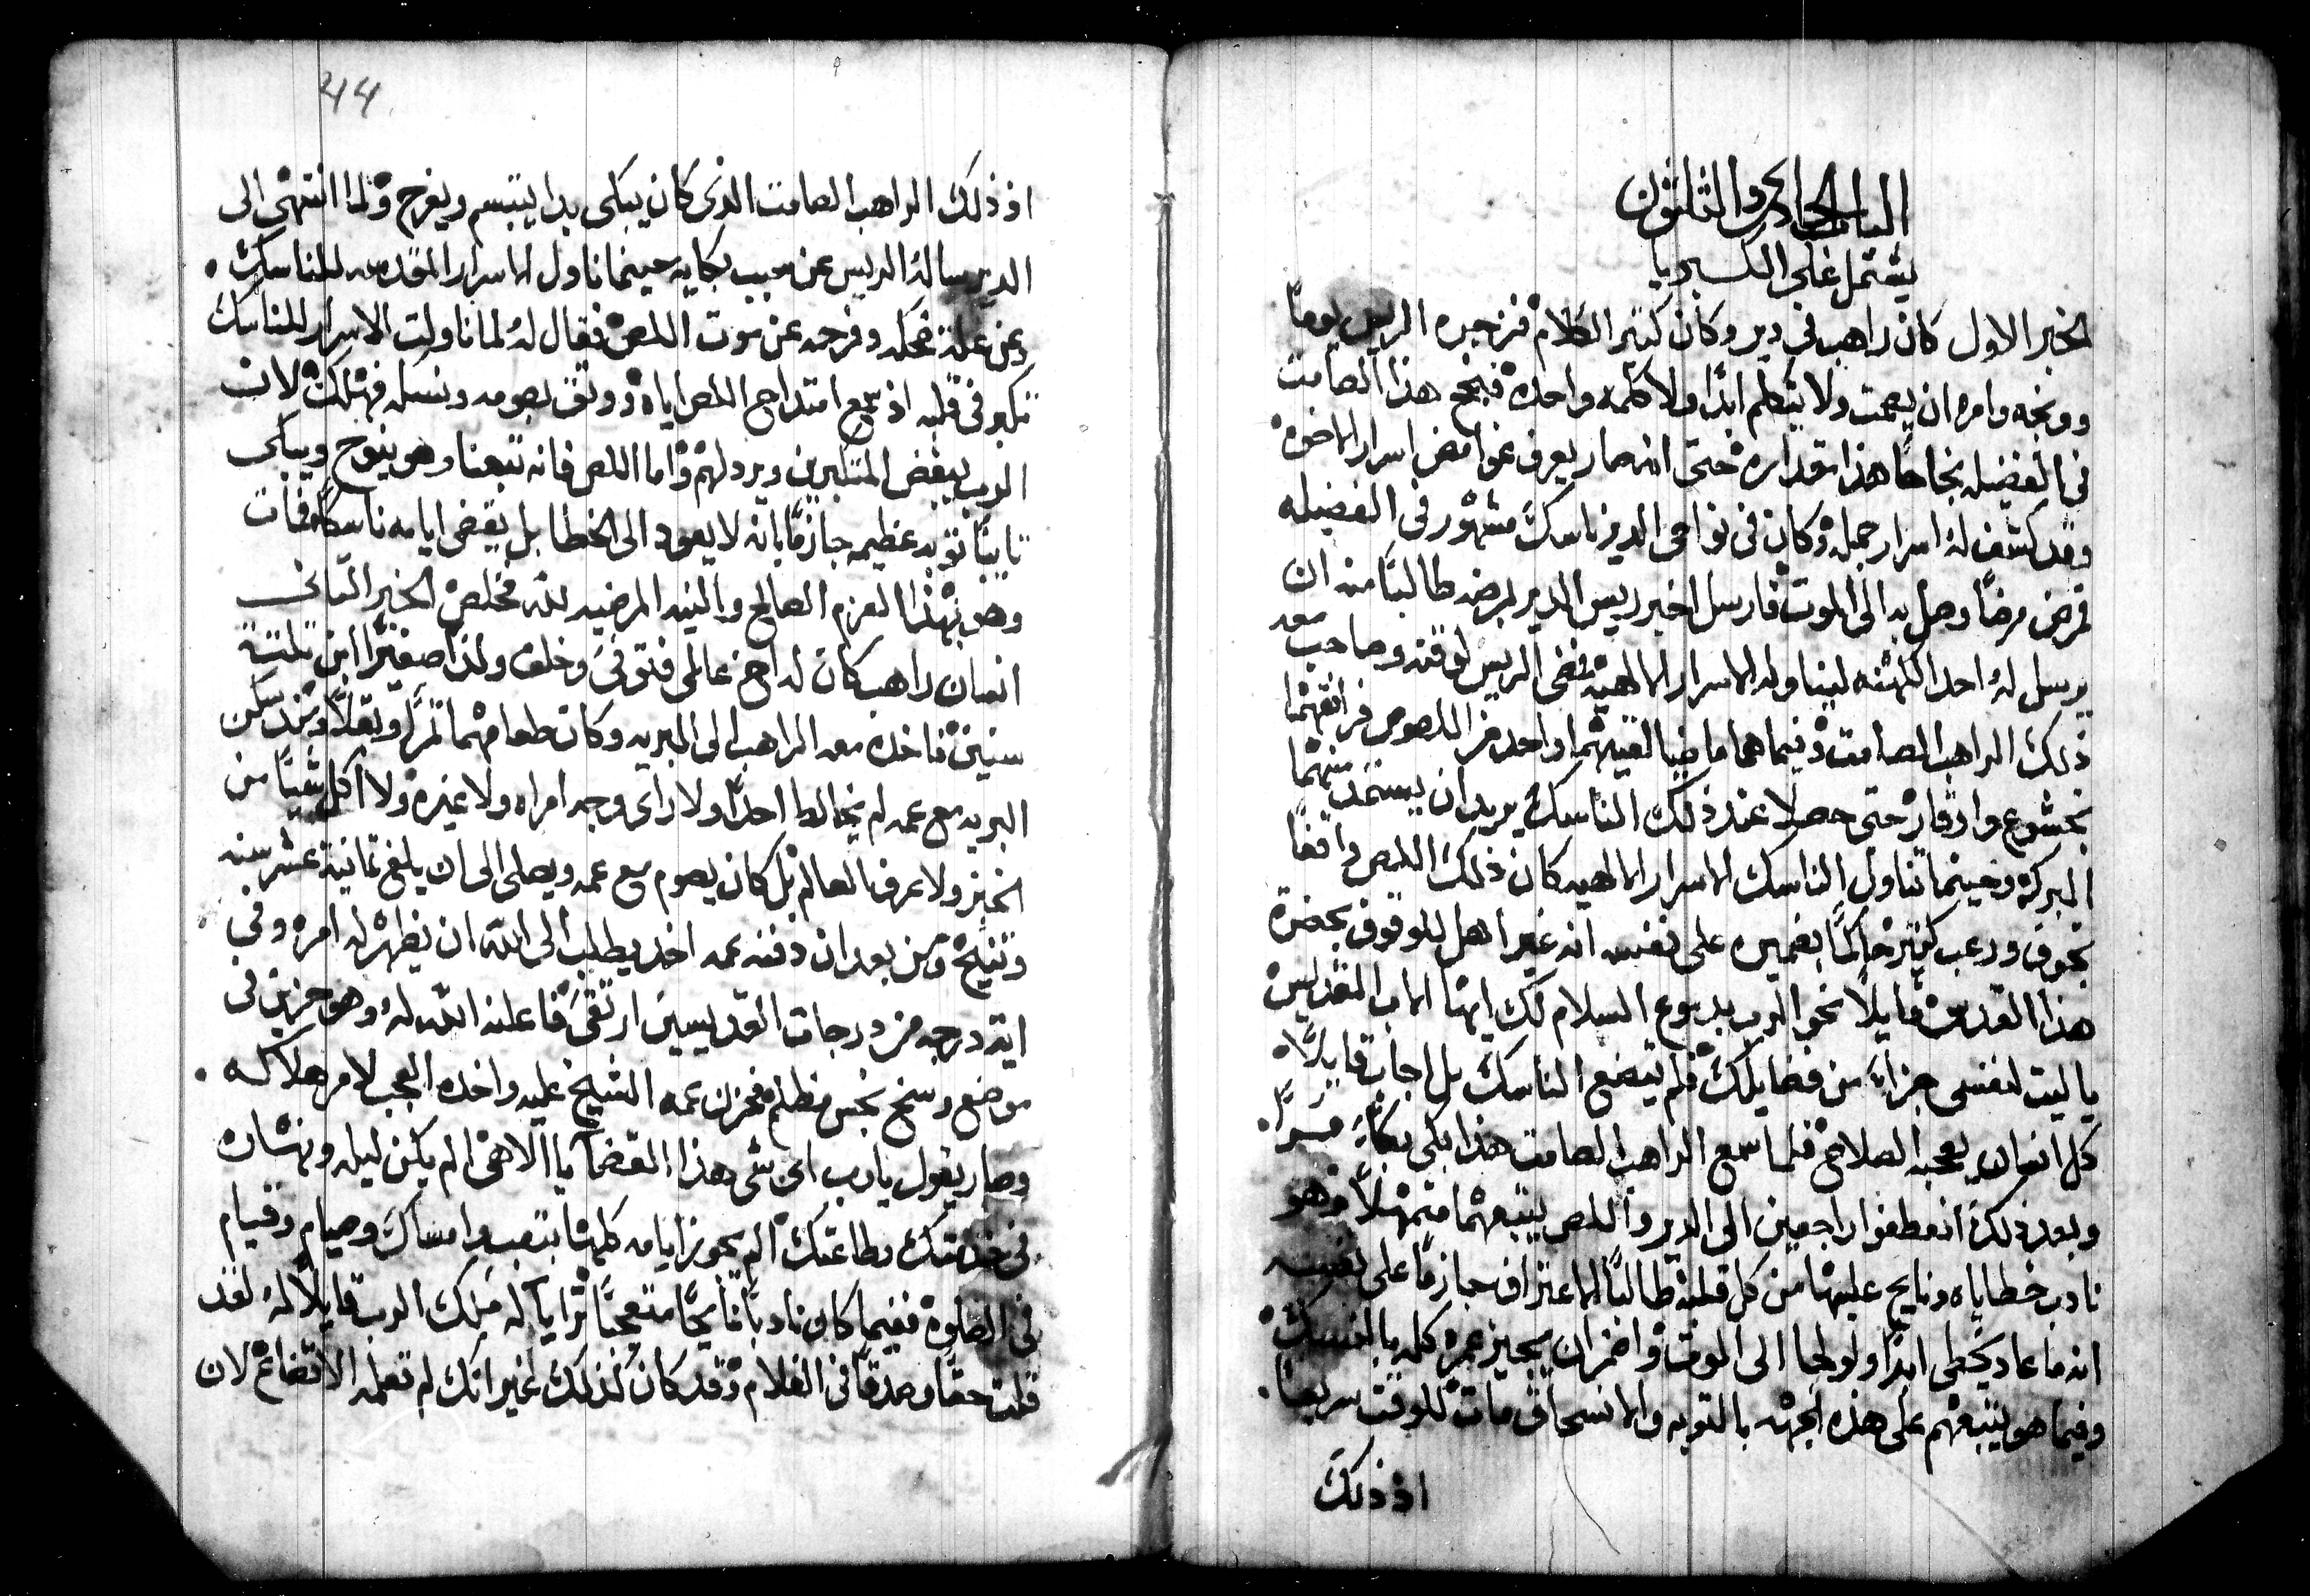 الباب الحادي والثلثون
يشتمل على الكبريا
الخبر الاول كان راهب في دير وكان كثير الكلام فزجره الريس يوماً
ووبخه وامره ان يصمت ولا يتكلم ابداً ولا كلمه واحده فنجح هذا الصامت
في الفضيله نجاحاً هذا مقداره حتى انه صار يعرف غوامض اسرار الاخوه
وقد كشف له اسرار جمله وكان في نواحي الدير ناسك مشهور في الفضيله
فمرض مرضاً وصل به الى الموت فارسل اخبر ريس الدير بمرضه طالباً منه ان
يرسل له احد الكهنه ليناوله الاسرار الالهيه فمضى الريس لوقته وصاحب معه
ذلك الراهب الصامت وفيما هما ماضيا لقيهما واحد من اللصوص فرافقهما
بخشوع ووقار حتى حصلا عند ذلك الناسك يريد ان يستمد منهما
البركه وحينما تناول الناسك الاسرار الالهيه كان ذلك اللص واقفاً
بخوف ورعب كثير حاكماً بضميره على نفسه انه غير اهل للوقوف بحضرة
هذا القدس قايلاً نحو الرب بدموع السلام لك ايها الاب القديس
يا ليت لنفسي جزاء من فضايلك فلم يتضع الناسك بل اجاب قايلاً
كل انسان يعجبه الصلاح فلما سمع الراهب الصامت هذا بكى بكاءً مراً
وبعد ذلك انعطفوا راجعين الى الدير واللص يتبعهما متمهلاً وهو
نادب خطاياه ونايح عليها من كل قلبه طالباً الاعتراف جازماً على نفسه
انه ما عاد يخطى ابداً ولو لجا الى الموت واضمر ان يجيز عمره كله بالنسك
وفيما هو يتبعهم على هذه الجهه بالتوبه والانسحاق مات للوقت سريعاً
اذ ذلك
44
اذ ذلك الراهب الصامت الذي كان يبكي بدا يتبسم ويفرح ولما انتهى الى
الدير ساله الريس عن سبب بكايه حينما ناول الاسرار المقدسه للناسك
وعن علة ضحكه وفرحه عن موت اللص فقال له لما ناولت الاسرار للناسك
تكبر في قلبه اذ سمع امتداح اللص اياه ووثق بصومه ونسكه فهلك لان
الرب يبغض المتكبرين ويرذلهم واما اللص فانه تبعنا وهو ينوح ويبكي
تايباً توبه عظيمه جازماً بانه لا يعود الى الخطا بل يقضي ايامه ناسكاً فمات
وهو بهذا العزم الصالح والنيه المرضيه لله مخلص الخبر الثاني
انسان راهب كان له اخ عالمي فتوفى وخلف ولداً صغيراً ابن ثلثة
سنين فاخذه معه الراهب الى البريه وكان طعامهما تمراً وبقلاً ومنذ سكن
البريه مع عمه لم يخالط احداً ولا راى وجه امراه ولا غيره ولا اكل شياً من
الخبز ولا عرف العالم بل كان يصوم مع عمه ويصلي الى ان بلغ ثمانية عشر سنه
وتنيح ومن بعد ان دفنه عمه اخذ يطلب الى الله ان يظهر له امره وفي
اية درجه من درجات القديسين ارتقى فاعلنه الله له وهو حزين في
موضع وسخ نجس مظلم فحزن عمه الشيخ عليه واخذه العجب لامر هلاكه
وصار يقول يا رب اي شي هذا القضا يا الاهي الم يكن ليله ونهاره
في خدمتك وطاعتك الم يجوز ايامه كلها بتعب وامساك وصيام وقيام
في الصلوه ففيما كان نادباً نايحاً متعجباً ترايا له ملاك الرب قايلاً له لقد
قلت حقاً وصدقاً في الغلام وقد كان كذلك غير انك لم تعلمه الاتضاع لان